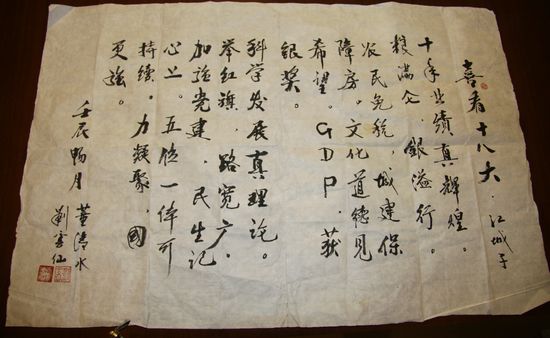 喜看十八大·江城子
十年业绩真辉煌。
粮满仓,银溢行。
农民免税,城建保
障房。文化道德见
希望。GDP,获
银奖。
科学发展真理论。
举红旗,路宽广。
加强党建,民生记
心上。五位一体可
持续。力凝聚,国
更强。
壬辰畅月
董清水
雲仙